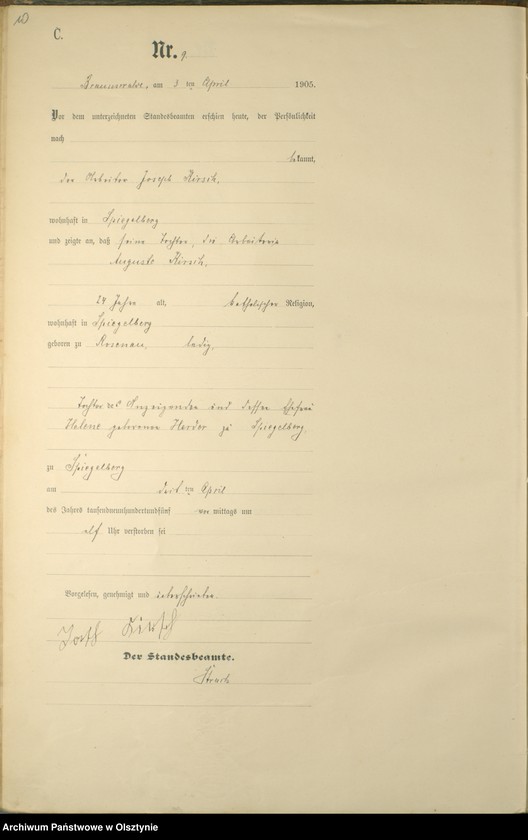 10
C.
Nr. 9.
Braunswalde, am 3 ten April 1905.
Vor dem unterzeichneten Standesbeamten erschien heute, der Persönlichkeit
nach
bekannt,
der Arbeiter Joseph Kirsch,
wohnhaft in Spiegelberg
und zeigte an, daß seine Tochter, die Arbeiterin
Auguste Kirsch,
24 Jahre alt, katholischer Religion,
wohnhaft in Spiegelberg
geboren zu Rosenau, ledig,
Tochter des Anzeigenden und dessen Ehefrau
Helene geborenen Herder zu Spiegelberg
zu Spiegelberg
am ten April
des Jahres tausendneunhundertundfünf vor mittags um
elf Uhr verstorben sei
Vorgelesen, genehmigt und unterschrieben.
Kirsch
Der Standesbeamte.
Archiwum Państwowe w Olsztynie